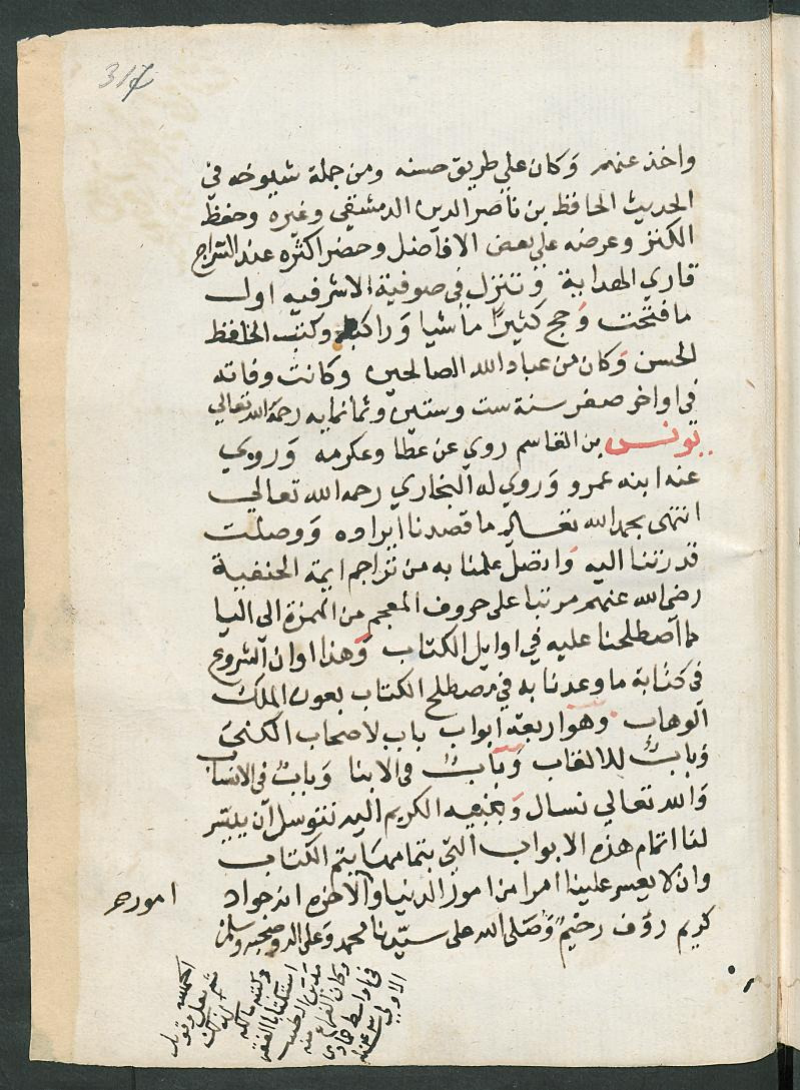 317
واخذ عنهم وكان علي طريق حسنه ومن جملة شيوخه في
الحديث الحافظ بن ناصر الدين الدمشقي وغيره وحفظ
الكنز وعرضه علي بعض الافاضل وحضر اكثره عند السراج
قاري الهداية وتنزل في صوفية الاشرفيه اول
ما فتحت وحج كثيرا ماشيا وراكبا وكتب الخط
الحسن وكان من عباد الله الصالحين وكانت وفاته
في اواخر صفر سنة ست وستين وثمانمايه رحمه الله تعالي
يونس بن القاسم روي عن عطا وعكرمه وروي
عنه ابنه عمرو وروي له البخاري رحمه الله تعالي
انتهى بحمد الله تعالي ما قصدنا ايراده ووصلت
قدرتنا اليه واتصل علمنا به من تراجم ايمة الحنفية
رضي الله عنهم مرتبا على حروف المعجم من الهمزة الى اليا
كما اصطلحنا عليه في اوايل الكتاب وهذا اوان الشروع
في كتابة ما وعدنا به في مصطلح الكتاب بعون الملك
الوهاب وهو اربعة ابواب باب لاصحاب الكنى
وباب للالقاب وباب في الابنا وباب في الانساب
والله تعالي نسال وبنبيه الكريم اليه نتوسل ان ييسر
لنا اتمام هذه الابواب التي بتمامها يتم الكتاب
وان لا يعسر علينا امرا من امور الدنيا والاخرة انه جواد
كريم رؤف رحيم وصلى الله على سيدنا محمد وعلى اله وصحبه وسلم
امور صح
الحمد لله
في اواسط جمادى
الاولى